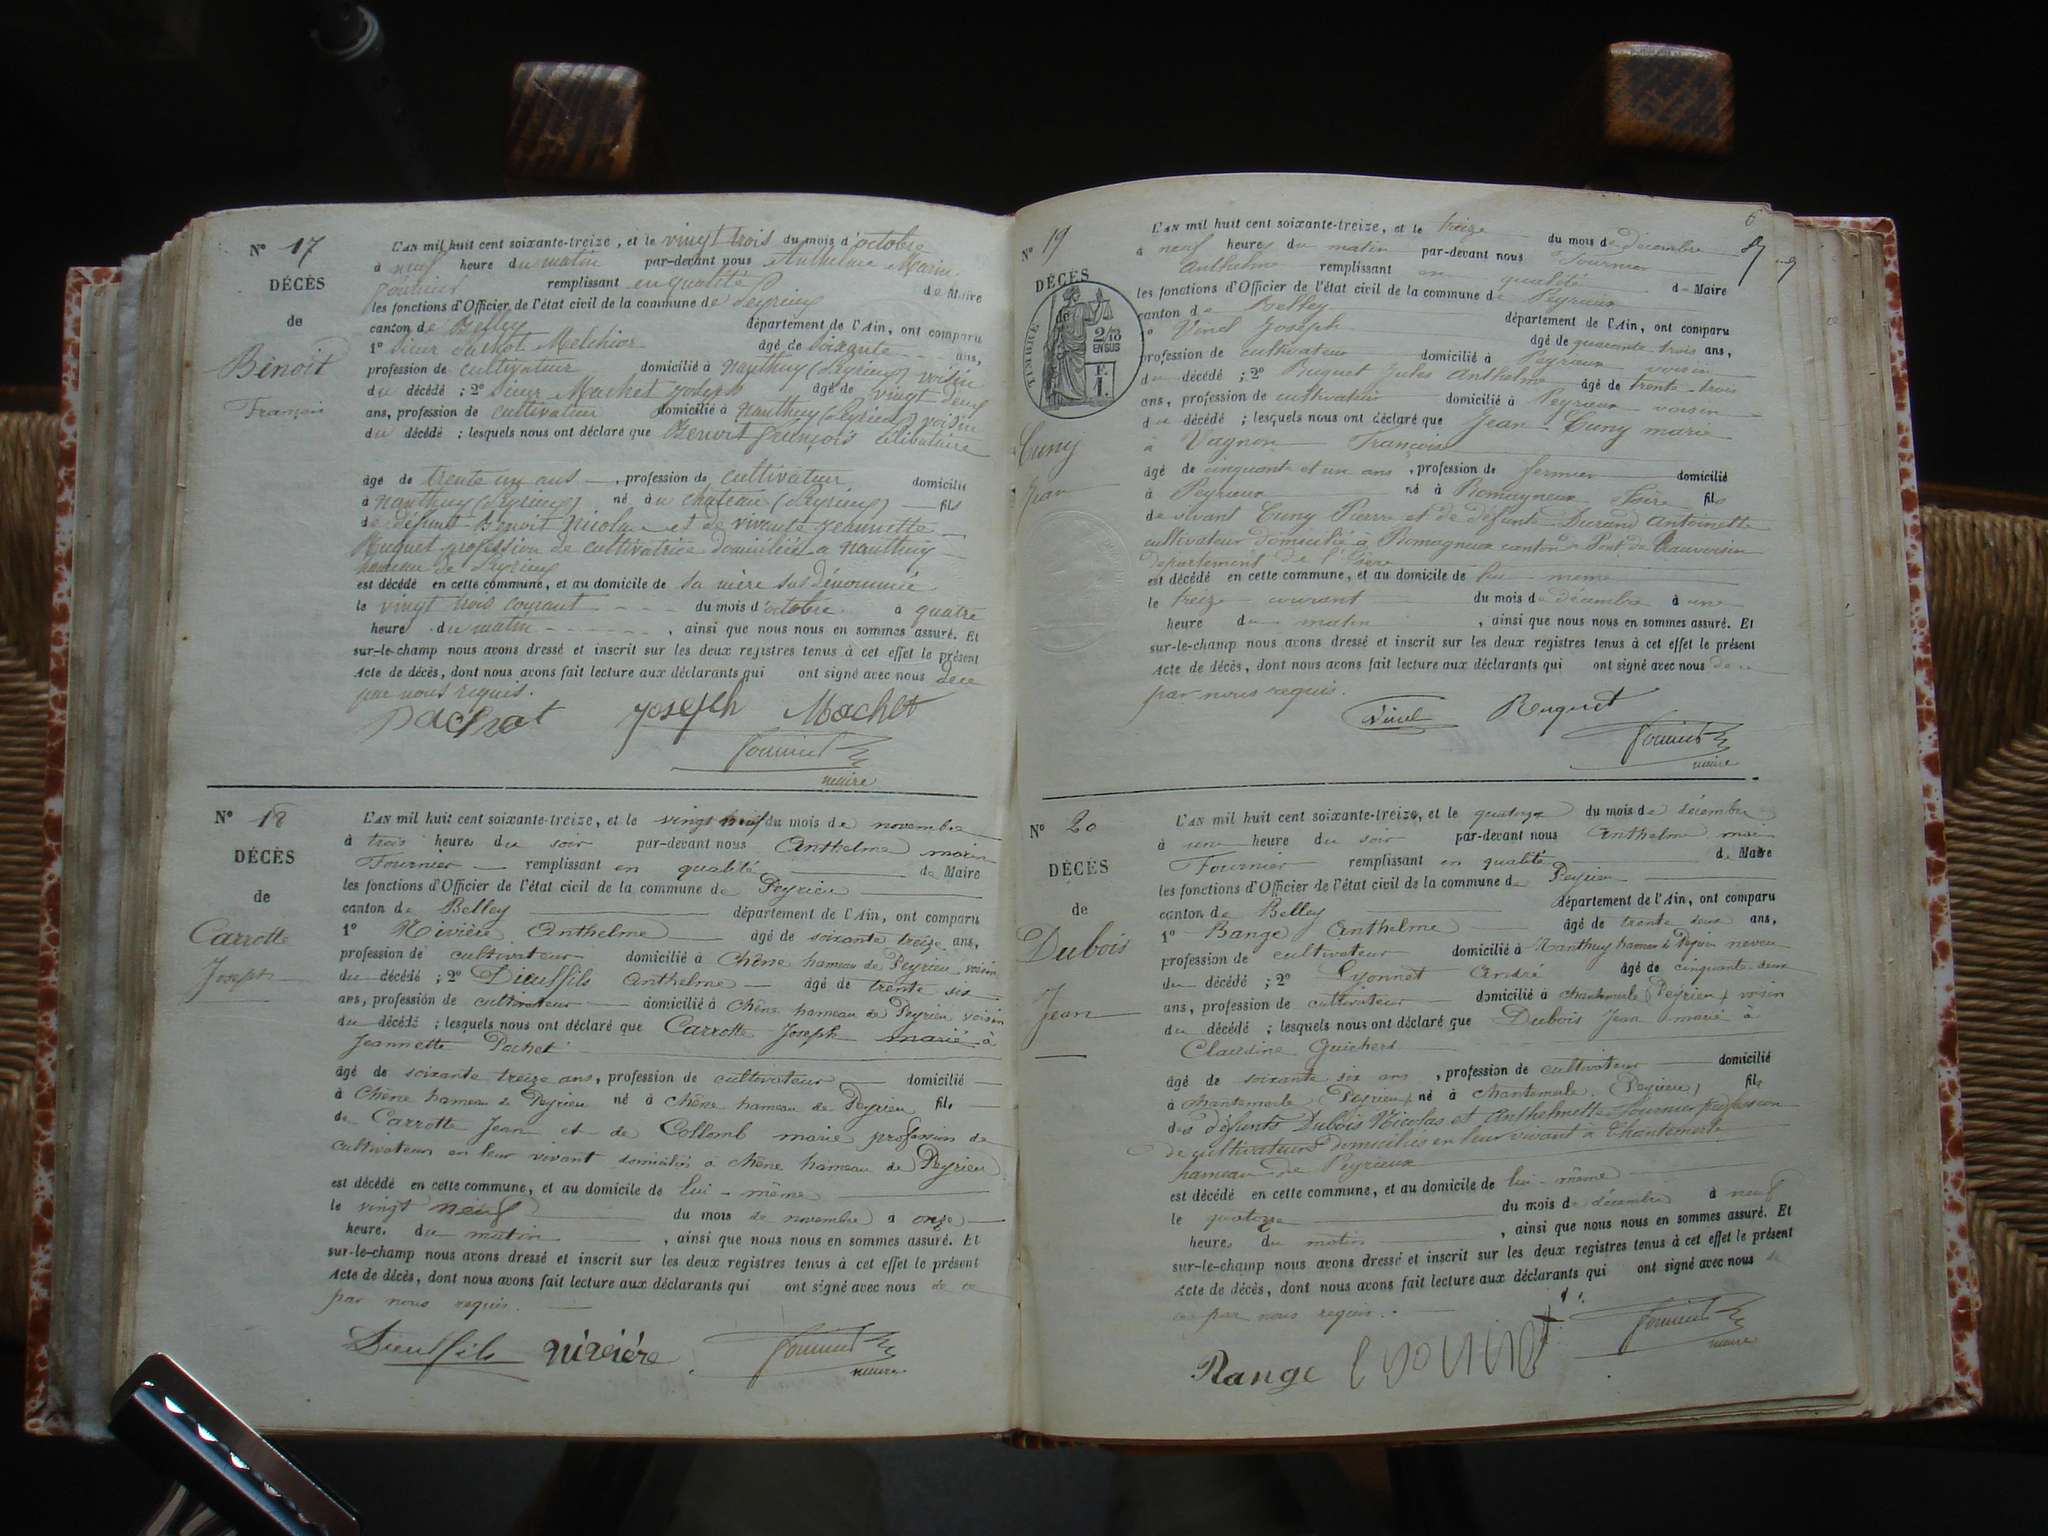 N° 17
DÉCÈS
de
Benoit
François
L'AN mil huit cent soixante-treize, et le vingt trois du mois d'octobre
à neuf heure du matin par-devant nous Anthelme Marin
Fournier remplissant en qualité de Maire
les fonctions d'Officier de l'état civil de la commune de Peyrieu
canton de Belley département de l'Ain, ont comparu
1° Sieur Pachot Melchior âgé de soixante ans,
profession de cultivateur domicilié à Nanthuy (Peyrieu) voisin
du décédé ; 2° Sieur Machet Joseph âgé de vingt neuf
ans, profession de cultivateur domicilié à Nanthuy (Peyrieu) voisin
du décédé ; lesquels nous ont déclaré que Benoit François célibataire
âgé de trente un ans, profession de cultivateur domicilié
à Nanthuy (Peyrieu) né à chateau (Peyrieu) fils
de défunt Benoit Nicolas et de vivante Jeannette
Huguet profession de cultivatrice domiciliée à Nanthuy
hameau de Peyrieu
est décédé en cette commune, et au domicile de sa mère sus dénommée
le vingt trois courant du mois d'octobre à quatre
heure du matin, ainsi que nous nous en sommes assuré. Et
sur-le-champ nous avons dressé et inscrit sur les deux registres tenus à cet effet le présent
Acte de décès, dont nous avons fait lecture aux déclarants qui ont signé avec nous de ce
par nous requis.
Pachot Joseph Machet
Fournier
maire
N° 18
DÉCÈS
de
Carrotte
Joseph
L'AN mil huit cent soixante-treize, et le vingt neuf du mois de novembre
à trois heures du soir par-devant nous Anthelme marin
Fournier remplissant en qualité de Maire
les fonctions d'Officier de l'état civil de la commune de Peyrieu
canton de Belley département de l'Ain, ont comparu
1° Rivière Anthelme âgé de soixante treize ans,
profession de cultivateur domicilié à Chêne hameau de Peyrieu voisin
du décédé ; 2° Dieulfils Anthelme âgé de trente six
ans, profession de cultivateur domicilié à Chêne hameau de Peyrieu voisin
du décédé ; lesquels nous ont déclaré que Carrotte Joseph marié à
Jeannette Pochet
âgé de soixante treize ans, profession de cultivateur domicilié
à Chêne hameau de Peyrieu né à Chêne hameau de Peyrieu fils
de Carrotte Jean et de Collomb marie profession de
cultivateurs en leur vivant domiciliés à Chêne hameau de Peyrieu
est décédé en cette commune, et au domicile de lui-même
le vingt neuf du mois de novembre à onze
heures du matin, ainsi que nous nous en sommes assuré. Et
sur-le-champ nous avons dressé et inscrit sur les deux registres tenus à cet effet le présent
Acte de décès, dont nous avons fait lecture aux déclarants qui ont signé avec nous de ce
par nous requis.
Dieulfils rivière Fournier
maire
N° 19
DÉCÈS
de
TIMBRE
2/10
EN SUS
F.
1.
Cuny
Jean
L'AN mil huit cent soixante-treize, et le treize du mois de décembre
à neuf heures du matin par-devant nous Fournier
Anthelme remplissant en qualité de Maire
les fonctions d'Officier de l'état civil de la commune de Peyrieux
canton de Belley département de l'Ain, ont comparu
1° Vinel Joseph âgé de quarante trois ans,
profession de cultivateur domicilié à Peyrieux voisin
du décédé ; 2° Ruguet Jules Anthelme âgé de trente-trois
ans, profession de cultivateur domicilié à Peyrieux voisin
du décédé ; lesquels nous ont déclaré que Jean Cuny marié
à Vagnon Françoise
âgé de cinquante et un ans, profession de fermier domicilié
à Peyrieux né à Romagneux Isère fils
de vivant Cuny Pierre et de défunte Durand Antoinette
cultivateur domicilié à Romagneux canton de Pont de Beauvoisin
departement de l'Isère
est décédé en cette commune, et au domicile de lui-même
le treize courant du mois de décembre à une
heure du matin, ainsi que nous nous en sommes assuré. Et
sur-le-champ nous avons dressé et inscrit sur les deux registres tenus à cet effet le présent
Acte de décès, dont nous avons fait lecture aux déclarants qui ont signé avec nous de ce
par nous requis.
Vinel Ruguet
Fournier
maire
N° 20
DÉCÈS
de
Dubois
Jean
L'AN mil huit cent soixante-treize, et le quatorze du mois de décembre
à une heure du soir par-devant nous Anthelme marin
Fournier remplissant en qualité de Maire
les fonctions d'Officier de l'état civil de la commune de Peyrieu
canton de Belley département de l'Ain, ont comparu
1° Range Anthelme âgé de trente deux ans,
profession de cultivateur domicilié à Nanthuy hameau de Peyrieu neveu
du décédé ; 2° Lyonnet André âgé de cinquante deux
ans, profession de cultivateur domicilié à chantemerle (Peyrieu) voisin
du décédé ; lesquels nous ont déclaré que Dubois Jean marié à
Claudine Guichers
âgé de soixante six ans, profession de cultivateur domicilié
à chantemerle (Peyrieu) né à chantemerle (Peyrieu) fils
des défunts Dubois Nicolas et Anthelmette Fournier profession
de cultivateurs domiciliés en leur vivant à Chantemerle
hameau de Peyrieux
est décédé en cette commune, et au domicile de lui-même
le quatorze du mois de décembre à neuf
heures du matin, ainsi que nous nous en sommes assuré. Et
sur-le-champ nous avons dressé et inscrit sur les deux registres tenus à cet effet le présent
Acte de décès, dont nous avons fait lecture aux déclarants qui ont signé avec nous de
ce par nous requis.
Range Lyonnet Fournier
maire